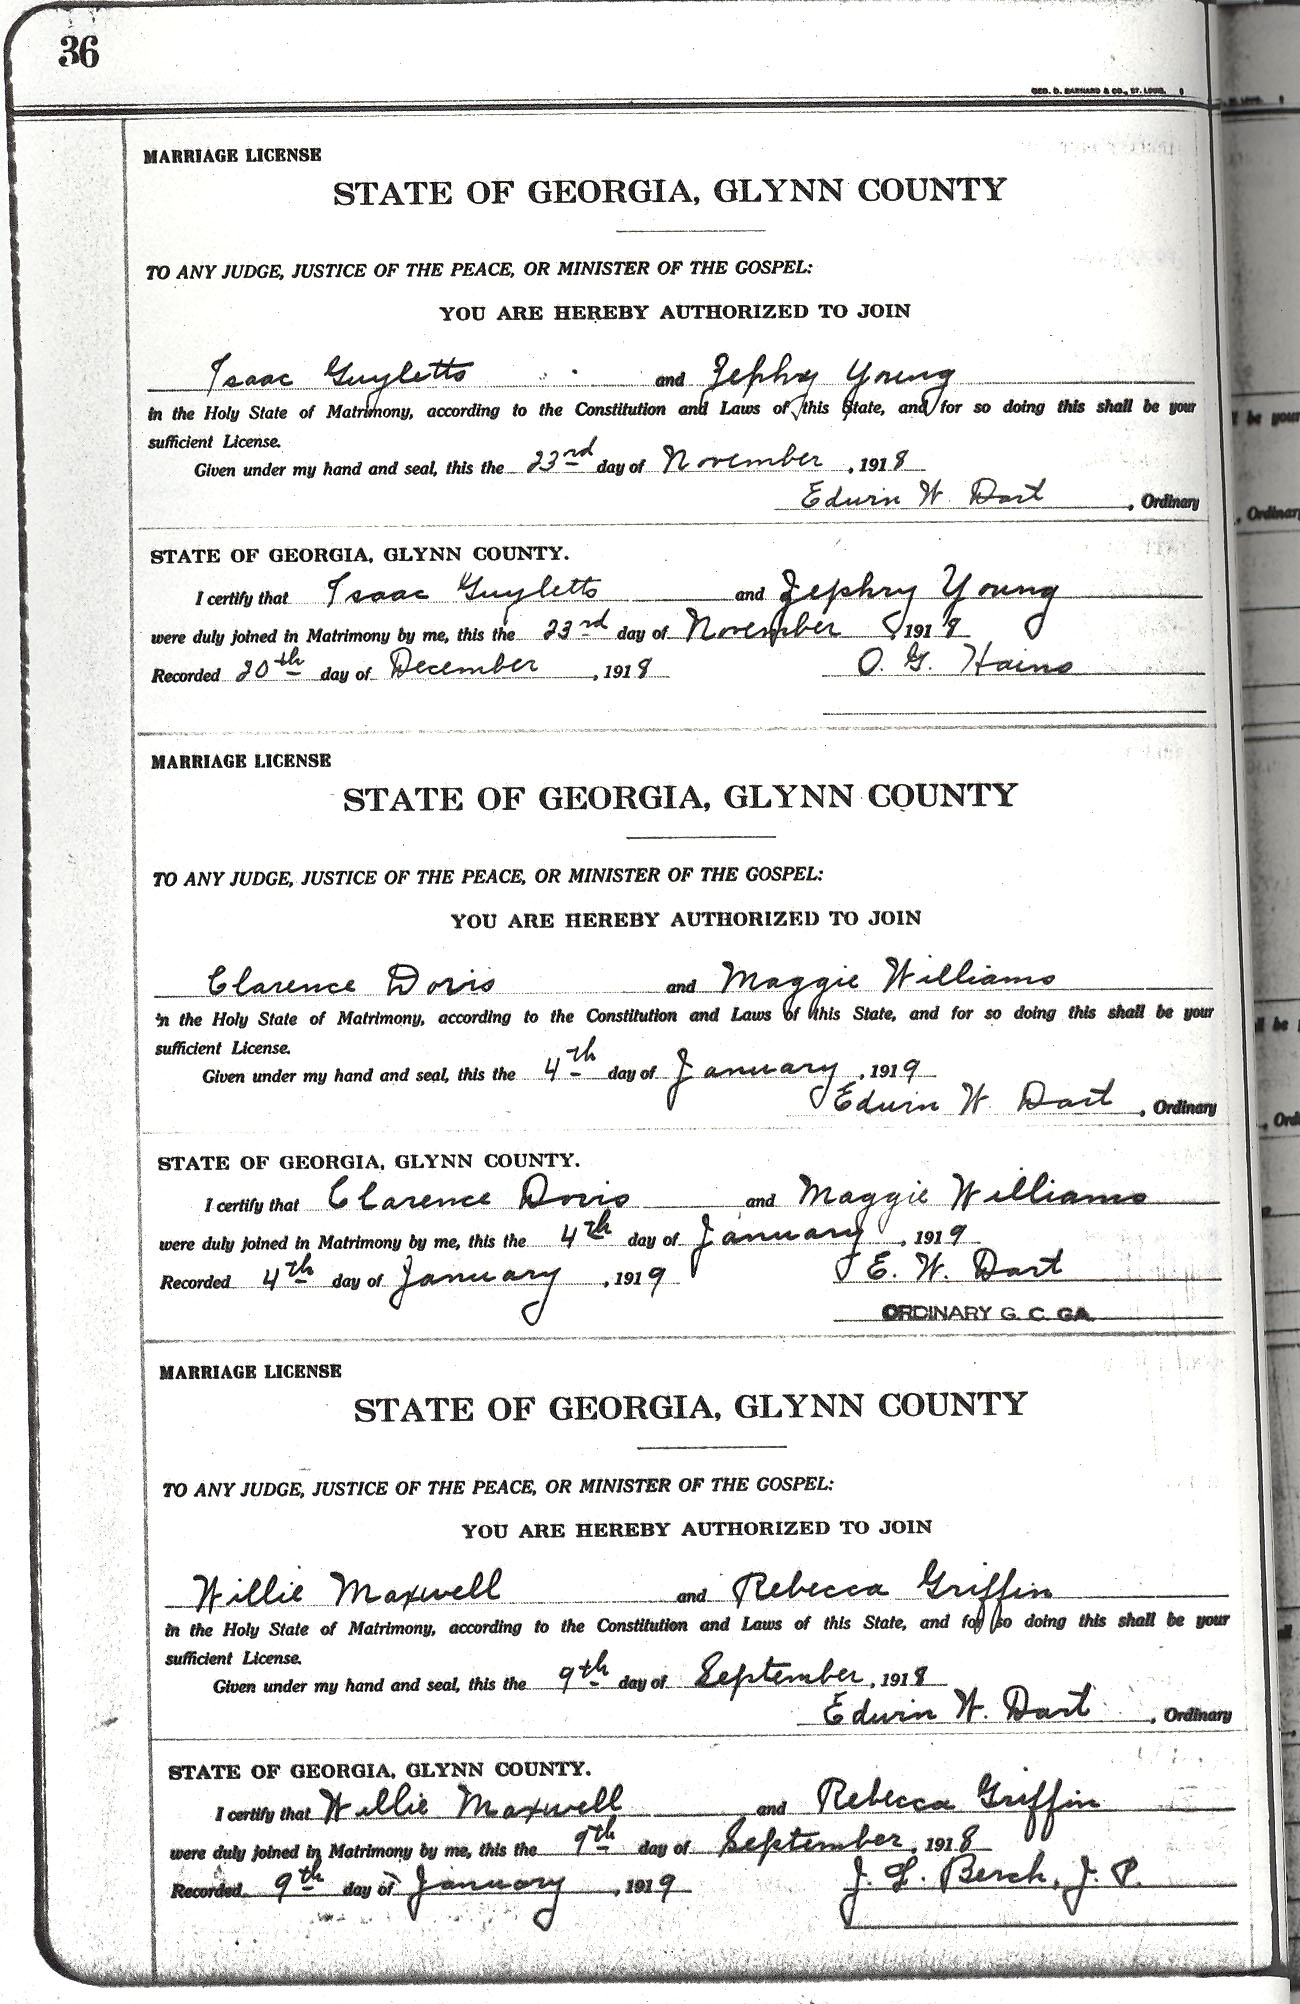 36
GEO. D. BARNARD & CO., ST. LOUIS.
MARRIAGE LICENSE
STATE OF GEORGIA, GLYNN COUNTY
TO ANY JUDGE, JUSTICE OF THE PEACE, OR MINISTER OF THE GOSPEL:
YOU ARE HEREBY AUTHORIZED TO JOIN
Isaac Guyletts and Zephry Young
in the Holy State of Matrimony, according to the Constitution and Laws of this State, and for so doing this shall be your
sufficient License.
Given under my hand and seal, this the 23rd day of November, 1918
Edwin W. Dart, Ordinary
STATE OF GEORGIA, GLYNN COUNTY.
I certify that Isaac Guyletts and Zephry Young
were duly joined in Matrimony by me, this the 23rd day of November 1918
Recorded 20th day of December, 1918 O. G. Hains
MARRIAGE LICENSE
STATE OF GEORGIA, GLYNN COUNTY
TO ANY JUDGE, JUSTICE OF THE PEACE, OR MINISTER OF THE GOSPEL:
YOU ARE HEREBY AUTHORIZED TO JOIN
Clarence Doris and Maggie Williams
in the Holy State of Matrimony, according to the Constitution and Laws of this State, and for so doing this shall be your
sufficient License.
Given under my hand and seal, this the 4th day of January, 1919
Edwin W. Dart, Ordinary
STATE OF GEORGIA, GLYNN COUNTY.
I certify that Clarence Doris and Maggie Williams
were duly joined in Matrimony by me, this the 4th day of January, 1919
Recorded 4th day of January, 1919 E. W. Dart
ORDINARY G. C. GA.
MARRIAGE LICENSE
STATE OF GEORGIA, GLYNN COUNTY
TO ANY JUDGE, JUSTICE OF THE PEACE, OR MINISTER OF THE GOSPEL:
YOU ARE HEREBY AUTHORIZED TO JOIN
Willie Maxwell and Rebecca Griffin
in the Holy State of Matrimony, according to the Constitution and Laws of this State, and for so doing this shall be your
sufficient License.
Given under my hand and seal, this the 9th day of September, 1918
Edwin W. Dart, Ordinary
STATE OF GEORGIA, GLYNN COUNTY.
I certify that Willie Maxwell and Rebecca Griffin
were duly joined in Matrimony by me, this the 9th day of September, 1918
Recorded 9th day of January, 1919 J. L. Berch, J. P.